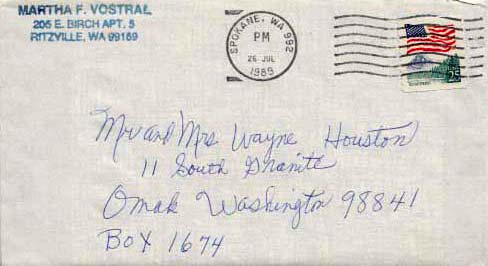 MARTHA F. VOSTRAL
205 E. BIRCH APT. 5
RITZVILLE, WA 99169
SPOKANE, WA 992
PM
26 JUL
1989
Mr and Mrs Wayne Houston
11 South Granite
Omak Washington 98841
Box 1674